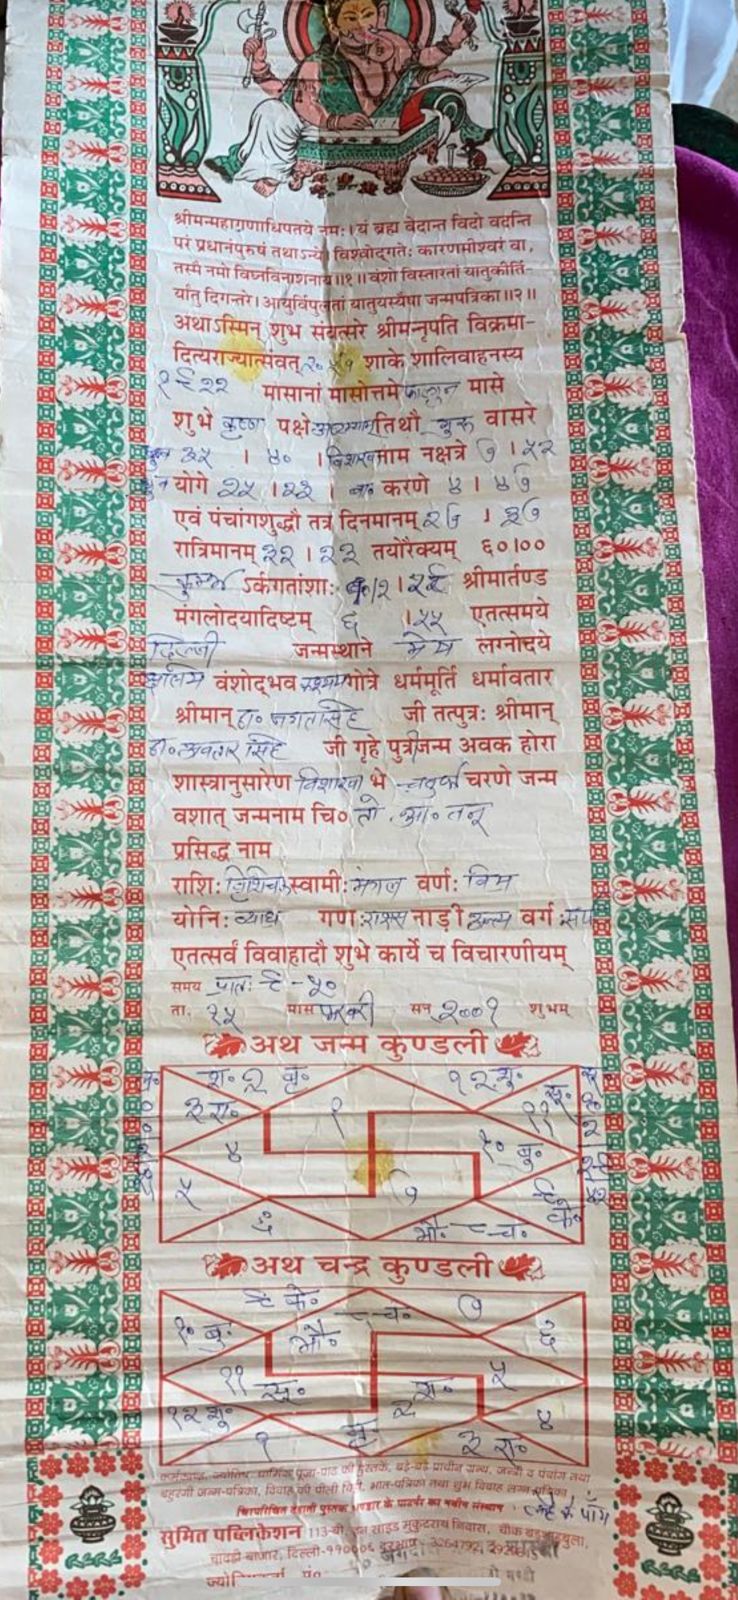 श्रीमन्महागणाधिपतये नमः। यं ब्रह्म वेदान्त विदो वदन्ति
परं प्रधानंपुरुषं तथाऽन्ये विश्वोद्गतेः कारणमीश्वरं वा,
तस्मै नमो विघ्नविनाशनाय॥१॥ वंशो विस्तारतां यातुकीर्ति-
र्यातु दिगन्तरे। आयुर्विपुलतां यातुयस्यैषा जन्मपत्रिका॥२॥
अथाऽस्मिन् शुभ संवत्सरे श्रीमन्नृपति विक्रमा-
दित्यराज्यात्संवत् २०५७ शाके शालिवाहनस्य
१९२२ मासानां मासोत्तमे फाल्गुन मासे
शुभे कृष्ण पक्षे तिथौ गुरु वासरे
३५ । ४० । विशाखा नाम नक्षत्रे ७ । ५२
योगे २५ । २३ । करणे ४ । ४७
एवं पंचांगशुद्धौ तत्र दिनमानम् २७ । ३७
रात्रिमानम् ३२ । २३ तयोरैक्यम् ६०।००
कुम्भ ऽर्कगतांशाः श्रीमार्तण्ड
मंगलोदयादिष्टम् ६ ।५५ एतत्समये
दिल्ली जन्मस्थाने मेष लग्नोदये
वंशोद्भव गोत्रे धर्ममूर्ति धर्मावतार
श्रीमान् डा॰ जगतसिंह जी तत्पुत्रः श्रीमान्
डा॰ अवतार सिंह जी गृहे पुत्रीजन्म अवक होरा
शास्त्रानुसारेण विशाखा भे चतुर्थ चरणे जन्म
वशात् जन्मनाम चि० तो. आ॰ तनू
प्रसिद्ध नाम
राशिः वृश्चिक स्वामीः मंगल वर्णः विप्र
योनिः व्याघ्र गणः राक्षस नाड़ी अन्त्य वर्गः सर्प
एतत्सर्वं विवाहादौ शुभे कार्ये च विचारणीयम्
समय प्रातः ९-५०
ता. १५ मास फरवरी सन् २००१ शुभम्
अथ जन्म कुण्डली
श॰ २ बृ॰ १२ शु॰
३ रा॰ १ ११ सू॰
४ १० बु॰
५ ७ ९ के॰
६ मं॰ ८ चं॰
अथ चन्द्र कुण्डली
९ के॰ ८ चं॰ ७
१० बु॰ मं॰ ६
११ सू॰ श॰ ५
१२ शु॰ २ ४
१ बृ॰ ३ रा॰
कर्मकाण्ड, ज्योतिष, धार्मिक पूजा-पाठ की पुस्तकें, बड़े-बड़े प्राचीन ग्रन्थ, जन्त्री व पंचांग तथा
बहुरंगी जन्म-पत्रिका, विवाह की पीली चिट्ठी, भात-पत्रिका तथा शुभ विवाह लग्न पत्रिका
चिरपरिचित देहाती पुस्तक भण्डार के पार्टनर का नवीन संस्थान
सुमित पब्लिकेशन 113-बी, इन साइड मुकुटराय निवास, चौक बड़शाहबुला,
चावड़ी बाजार, दिल्ली-११०००६ दूरभाष : 3264792,